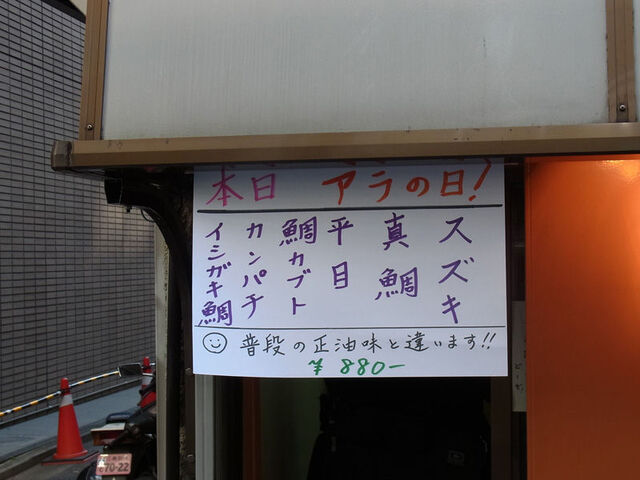 本日 アラの日!
スズキ
真鯛
平目
鯛カブト
カンパチ
イシガキ鯛
普段の正油味と違います!!
¥880-
70-22